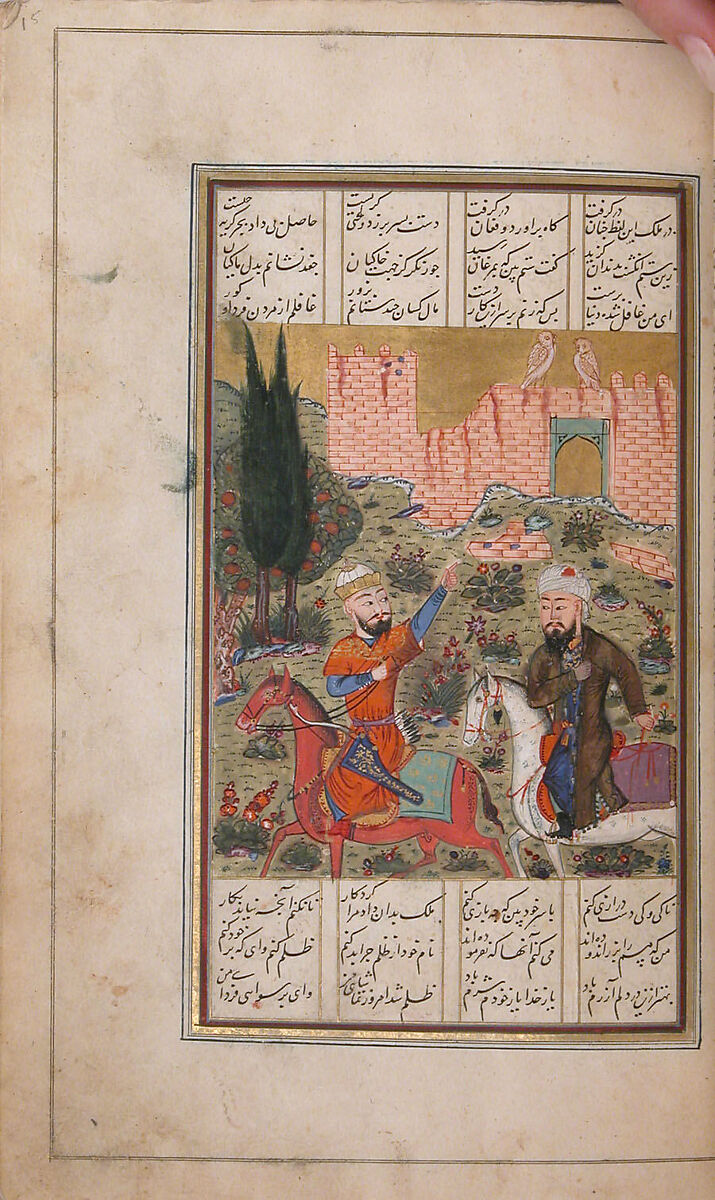 15
در ملک این لفظ چنان درگرفت کاه براورد و فغان درگرفت دست بسر بر زد و لختی گریست حاصل بیداد بجز گریه چیست
زین ستم انگشت بدندان گزید گفت ستم بین که بمرغان رسید جور نگر کز جهت خاکیان جغد نشانم بدل ماکیان
ای من غافل شده دنیا پرست بس که زنم بر سر ازین کار دست مال کسان چند ستانم بزور غافلم از مردن و فردا و گور
تا کی و کی دست درازی کنم با سر خود بین که چه بازی کنم ملک بدان داد مرا کردگار تا نکنم آنچه نیاید بکار
من که مسم را بزر اندوده اند می کنم آنها که نفرموده اند نام خود از ظلم چرا بد کنم ظلم کنم وای که بر خود کنم
بهتر ازین در دلم آزرم باد یا ز خدا یا ز خودم شرم باد ظلم شد امروز تماشای من وای بر سوایی فردای من